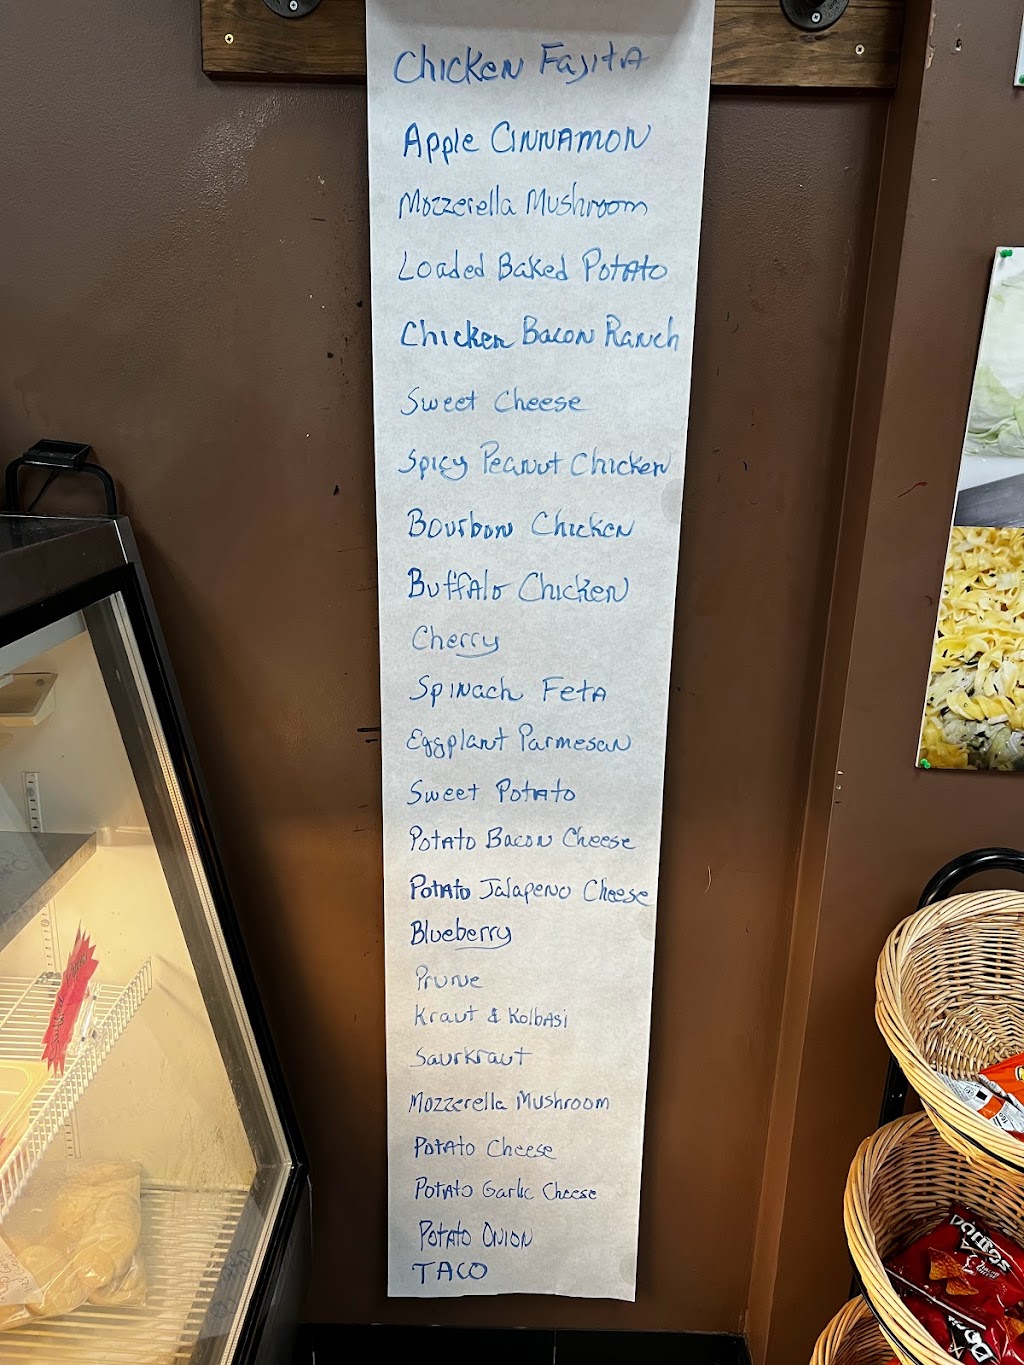 Chicken Fajita
Apple Cinnamon
Mozzerella Mushroom
Loaded Baked Potato
Chicken Bacon Ranch
Sweet Cheese
Spicy Peanut Chicken
Bourbon Chicken
Buffalo Chicken
Cherry
Spinach Feta
Eggplant Parmesan
Sweet Potato
Potato Bacon Cheese
Potato Jalapeno Cheese
Blueberry
Prune
Kraut & Kolbasi
Saurkraut
Mozzerella Mushroom
Potato Cheese
Potato Garlic Cheese
Potato Onion
TACO